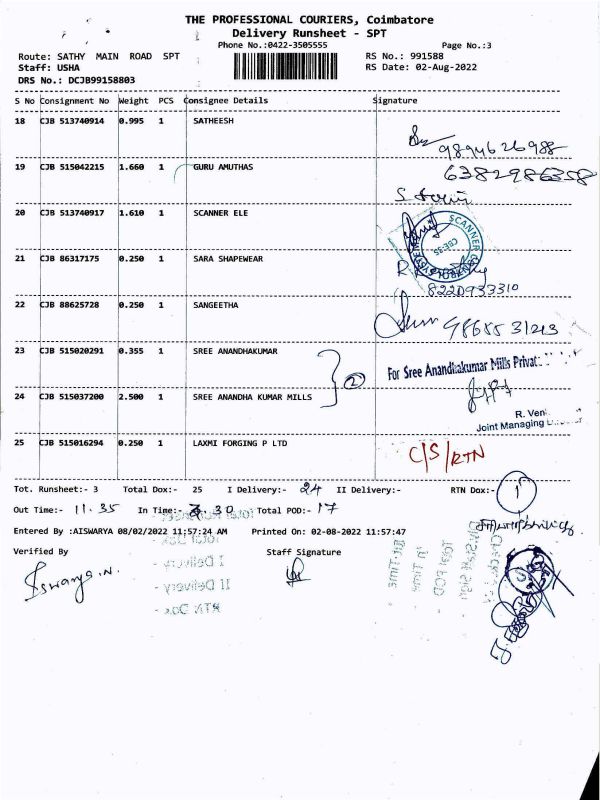 THE PROFESSIONAL COURIERS, Coimbatore
Delivery Runsheet - SPT
Phone No.:0422-3505555
Page No.:3
Route: SATHY MAIN ROAD SPT
RS No.: 991588
Staff: USHA
RS Date: 02-Aug-2022
DRS No.: DCJB99158803
S No Consignment No Weight PCS Consignee Details Signature
18 CJB 513740914 0.995 1 SATHEESH
9894626988
19 CJB 515042215 1.660 1 GURU AMUTHAS
6382986358
20 CJB 513740917 1.610 1 SCANNER ELE
21 CJB 86317175 0.250 1 SARA SHAPEWEAR
8220933310
22 CJB 88625728 0.250 1 SANGEETHA
98655 31213
23 CJB 515020291 0.355 1 SREE ANANDHAKUMAR
2
For Sree Anandhakumar Mills Privat
24 CJB 515037200 2.500 1 SREE ANANDHA KUMAR MILLS
R. Ven
Joint Managing
25 CJB 515016294 0.250 1 LAXMI FORGING P LTD
C/S/RTN
Tot. Runsheet:- 3 Total Dox:- 25 I Delivery:- 24 II Delivery:- RTN Dox:- 1
Out Time:- 11.35 In Time:- 3.30 Total POD:- 17
Entered By :AISWARYA 08/02/2022 11:57:24 AM Printed On: 02-08-2022 11:57:47
Verified By Staff Signature
I Delivery -
II Delivery -
RTN Dox -